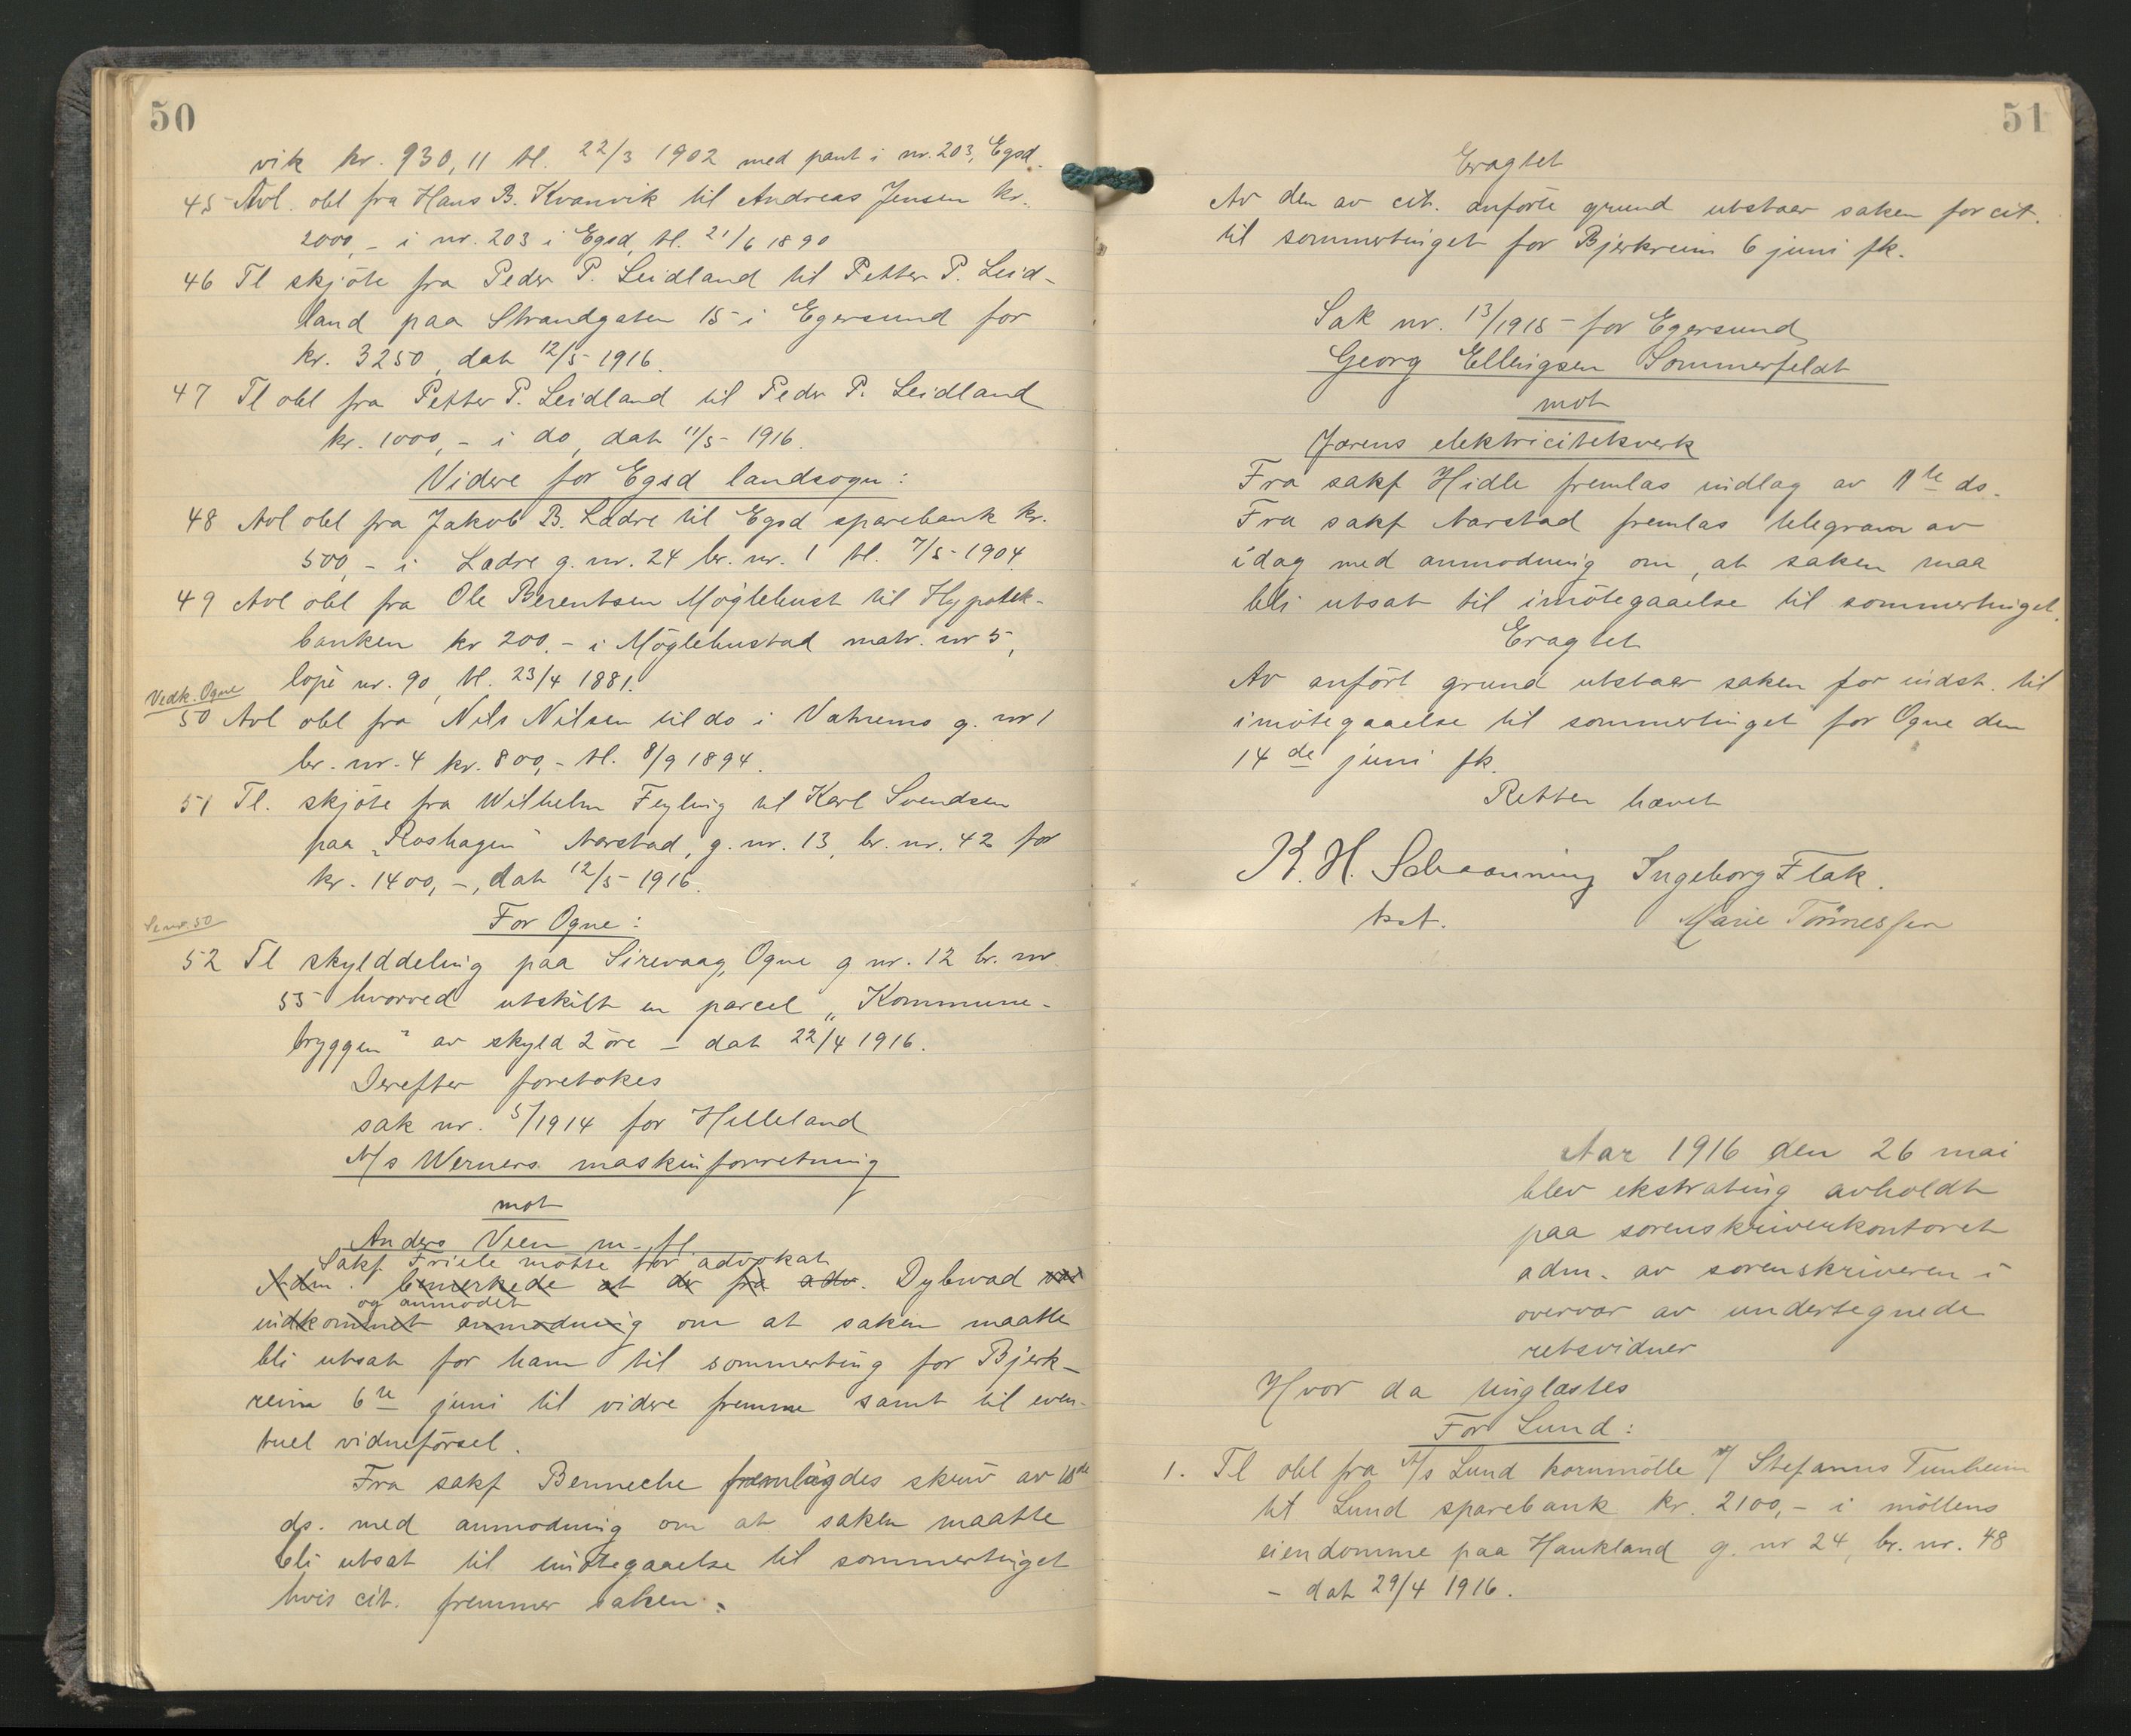 50
vik kr. 930,11 tl. 22/3 1902 med pant i nr. 203, Egsd.
45 Avl. obl fra Hans B. Kvanvik til Andreas Jensen kr.
2000,- i nr. 203 i Egsd, tl. 21/6 1890
46 Tl skjöte fra Peder P. Leidland til Petter P. Leid-
land paa Strandgaten 15 i Egersund for
kr. 3250, dat 12/5 1916.
47 Tl obl fra Petter P. Leidland til Peder P. Leidland
kr. 1000,- i do, dat 11/5 1916.
Videre for Egsd landsogn:
48 Avl obl fra Jakob B. Ladre til Egsd sparebank kr.
500,- i Ladre g. nr. 24 br. nr. 1 tl. 7/5 1904
49 Avl obl fra Ole Berentsen Möglehust til Hypotek-
banken kr 200,- i Möglehustad matr. nr 5,
lope nr. 90, tl. 23/4 1881.
Vedk. Ogne
50 Avl obl fra Nils Nilsen til do i Vatnemo g. nr 1
br. nr. 4 kr. 800,- tl. 8/9 1894.
51 Tl. skjöte fra Wilhelm Feyling til Karl Svendsen
paa „Roshagen" Aarstad, g. nr. 13, br. nr. 42 for
kr. 1400,-, dat 12/5 1916.
Se nr. 50
For Ogne:
52 Tl skylddeling paa Sirevaag, Ogne g nr. 12 br. nr
55 hvorved utskilt en parcel „Kommune-
bryggen" av skyld 2 öre - dat 22/4 1916.
Derefter foretokes
sak nr. 5/1914 for Helleland
A/s Werners maskinforretning
mot
Anders Veen m. fl.
Sakf. Friele mötte for advokat
Adm. bemerkede at der fra adv. Dybwad var
og anmodet
indkommet anmodning om at saken maatte
bli utsat for ham til sommerting for Bjerk-
reim 6te juni til videre fremme samt til even-
tuel vidneförsel.
Fra sakf Benneche fremlagdes skriv av 18de
ds. med anmodning om at saken maatte
bli utsat til imötegaaelse til sommertinget
hvis cit. fremmer saken.
51
Eragtet
Av den av cit. anförte grund utstaar saken for cit.
til sommertinget for Bjerkreim 6 juni fk.
Sak nr. 13/1915 for Egersund
Georg Ellingsen Sommerfeldt
mot
Jærens elektricitetsverk
Fra sakf Hidle fremlas indlag av 11te ds.
Fra sakf Aarstad fremlas telegram av
idag med anmodning om, at saken maa
bli utsat til imötegaaelse til sommertinget.
Eragtet
Av anfört grund utstaar saken for indst. til
imötegaaelse til sommertinget for Ogne den
14de juni fk.
Retten hævet
K. H. Schaanning Ingeborg Flak.
kst. Marie Tönnessen
Aar 1916 den 26 mai
blev ekstrating avholdt
paa sorenskriverkontoret
adm. av sorenskriveren i
overvær av undertegnede
retsvidner
Hvor da tinglæstes
For Lund:
1. Tl obl fra A/s Lund kornmölle v/ Stefanus Tunheim
til Lund sparebank kr. 2100,- i möllens
eiendomme paa Haukland g. nr 24, br. nr. 48
- dat 29/4 1916.